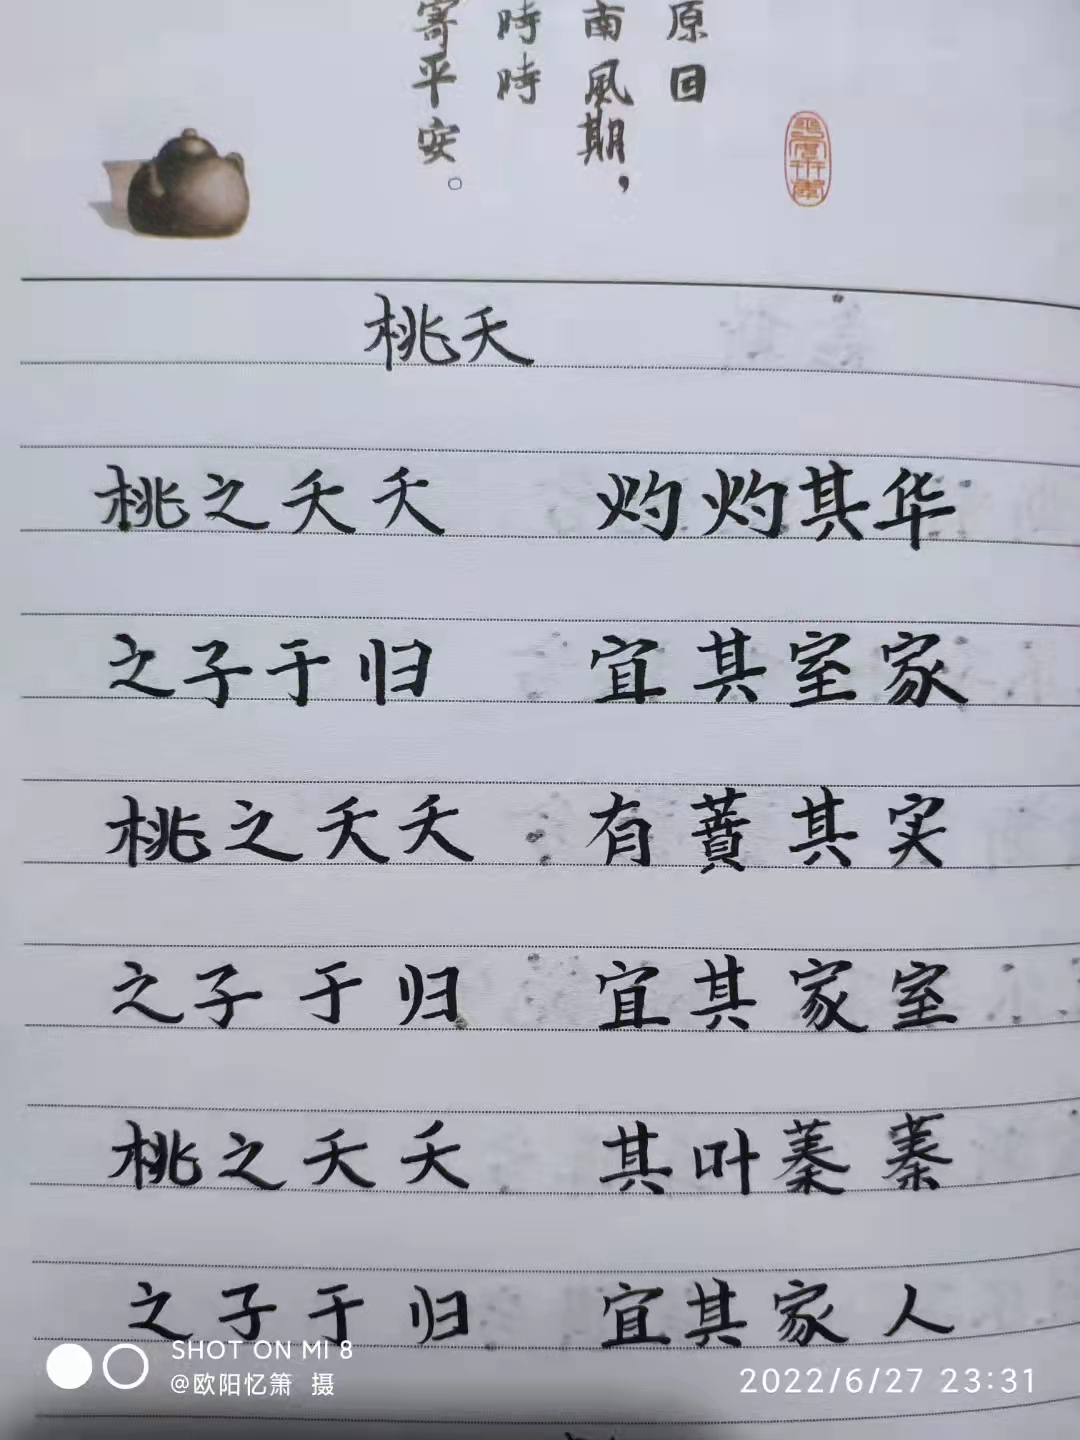 原回
南風期，
時時
寄平安。
桃夭
桃之夭夭 灼灼其华
之子于归 宜其室家
桃之夭夭 有蕡其实
之子于归 宜其家室
桃之夭夭 其叶蓁蓁
之子于归 宜其家人
SHOT ON MI 8
@欧阳忆箫 摄
2022/6/27 23:31